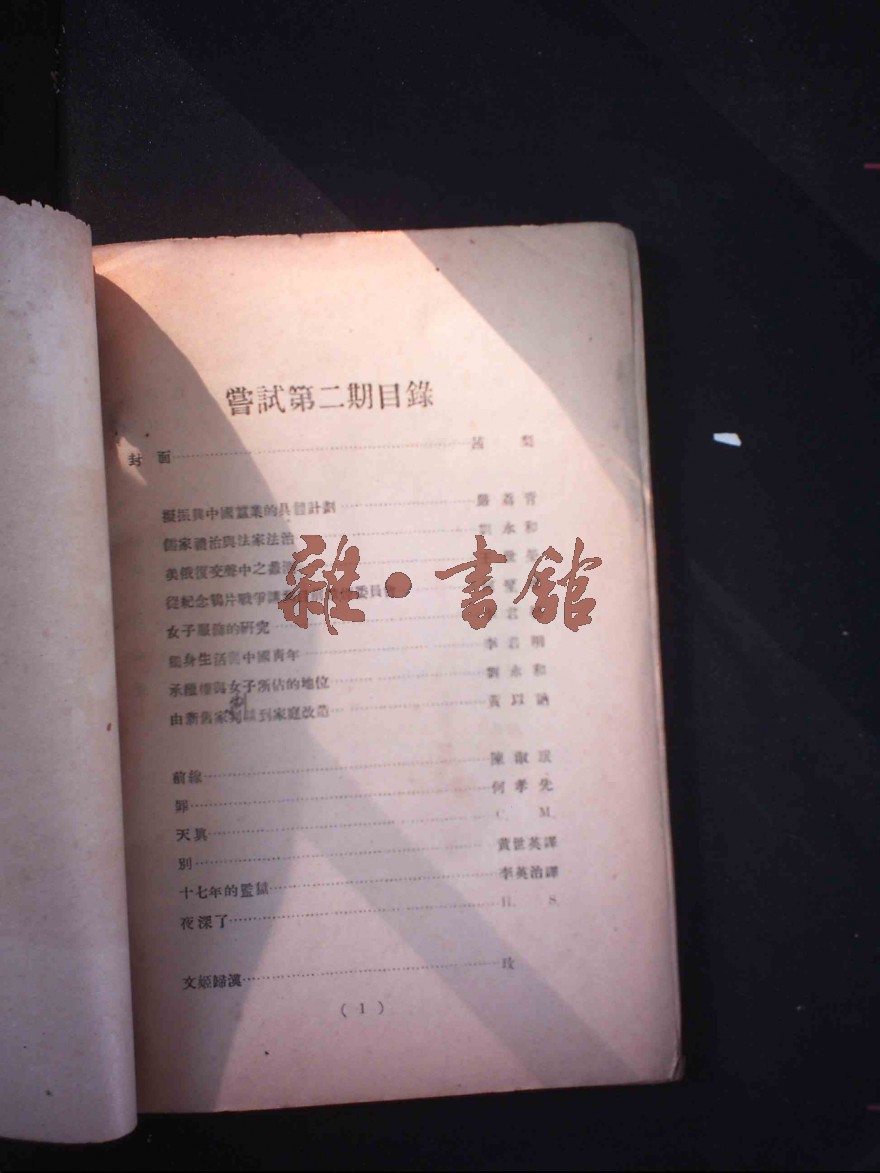 嘗試第二期目錄
封面
擬振興中國蠶業的具體計劃 青
儒家禮治與法家法治 劉永和
美俄復交聲中之
從紀念鴉片戰爭 委員會
女子服飾的研究 君
獨身生活與中國青年 李君明
承繼權與女子所佔的地位 劉永和
由新舊家 到家庭改造 黃以
前線 陳淑
罪 何孝先
天真 C. M.
別 黃世英譯
十七年的監獄 李英治譯
夜深了 H. S.
文姬歸漢 玫
( 1 )
雜·書館